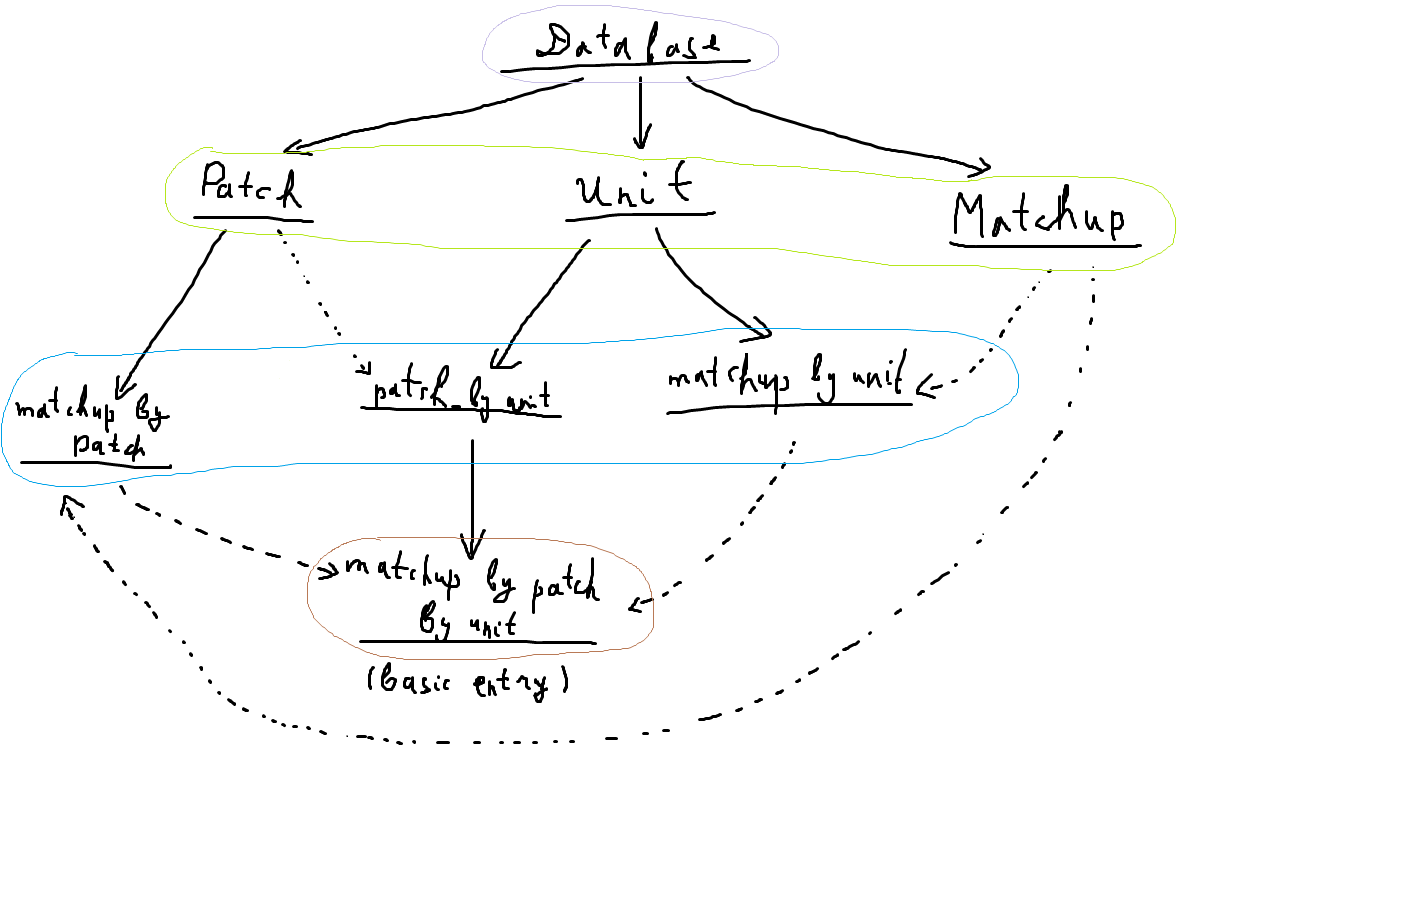 Database
Patch
Unit
Matchup
matchup by
patch
patch_by unit
matchup by unit
matchup by patch
By unit
(basic entry)